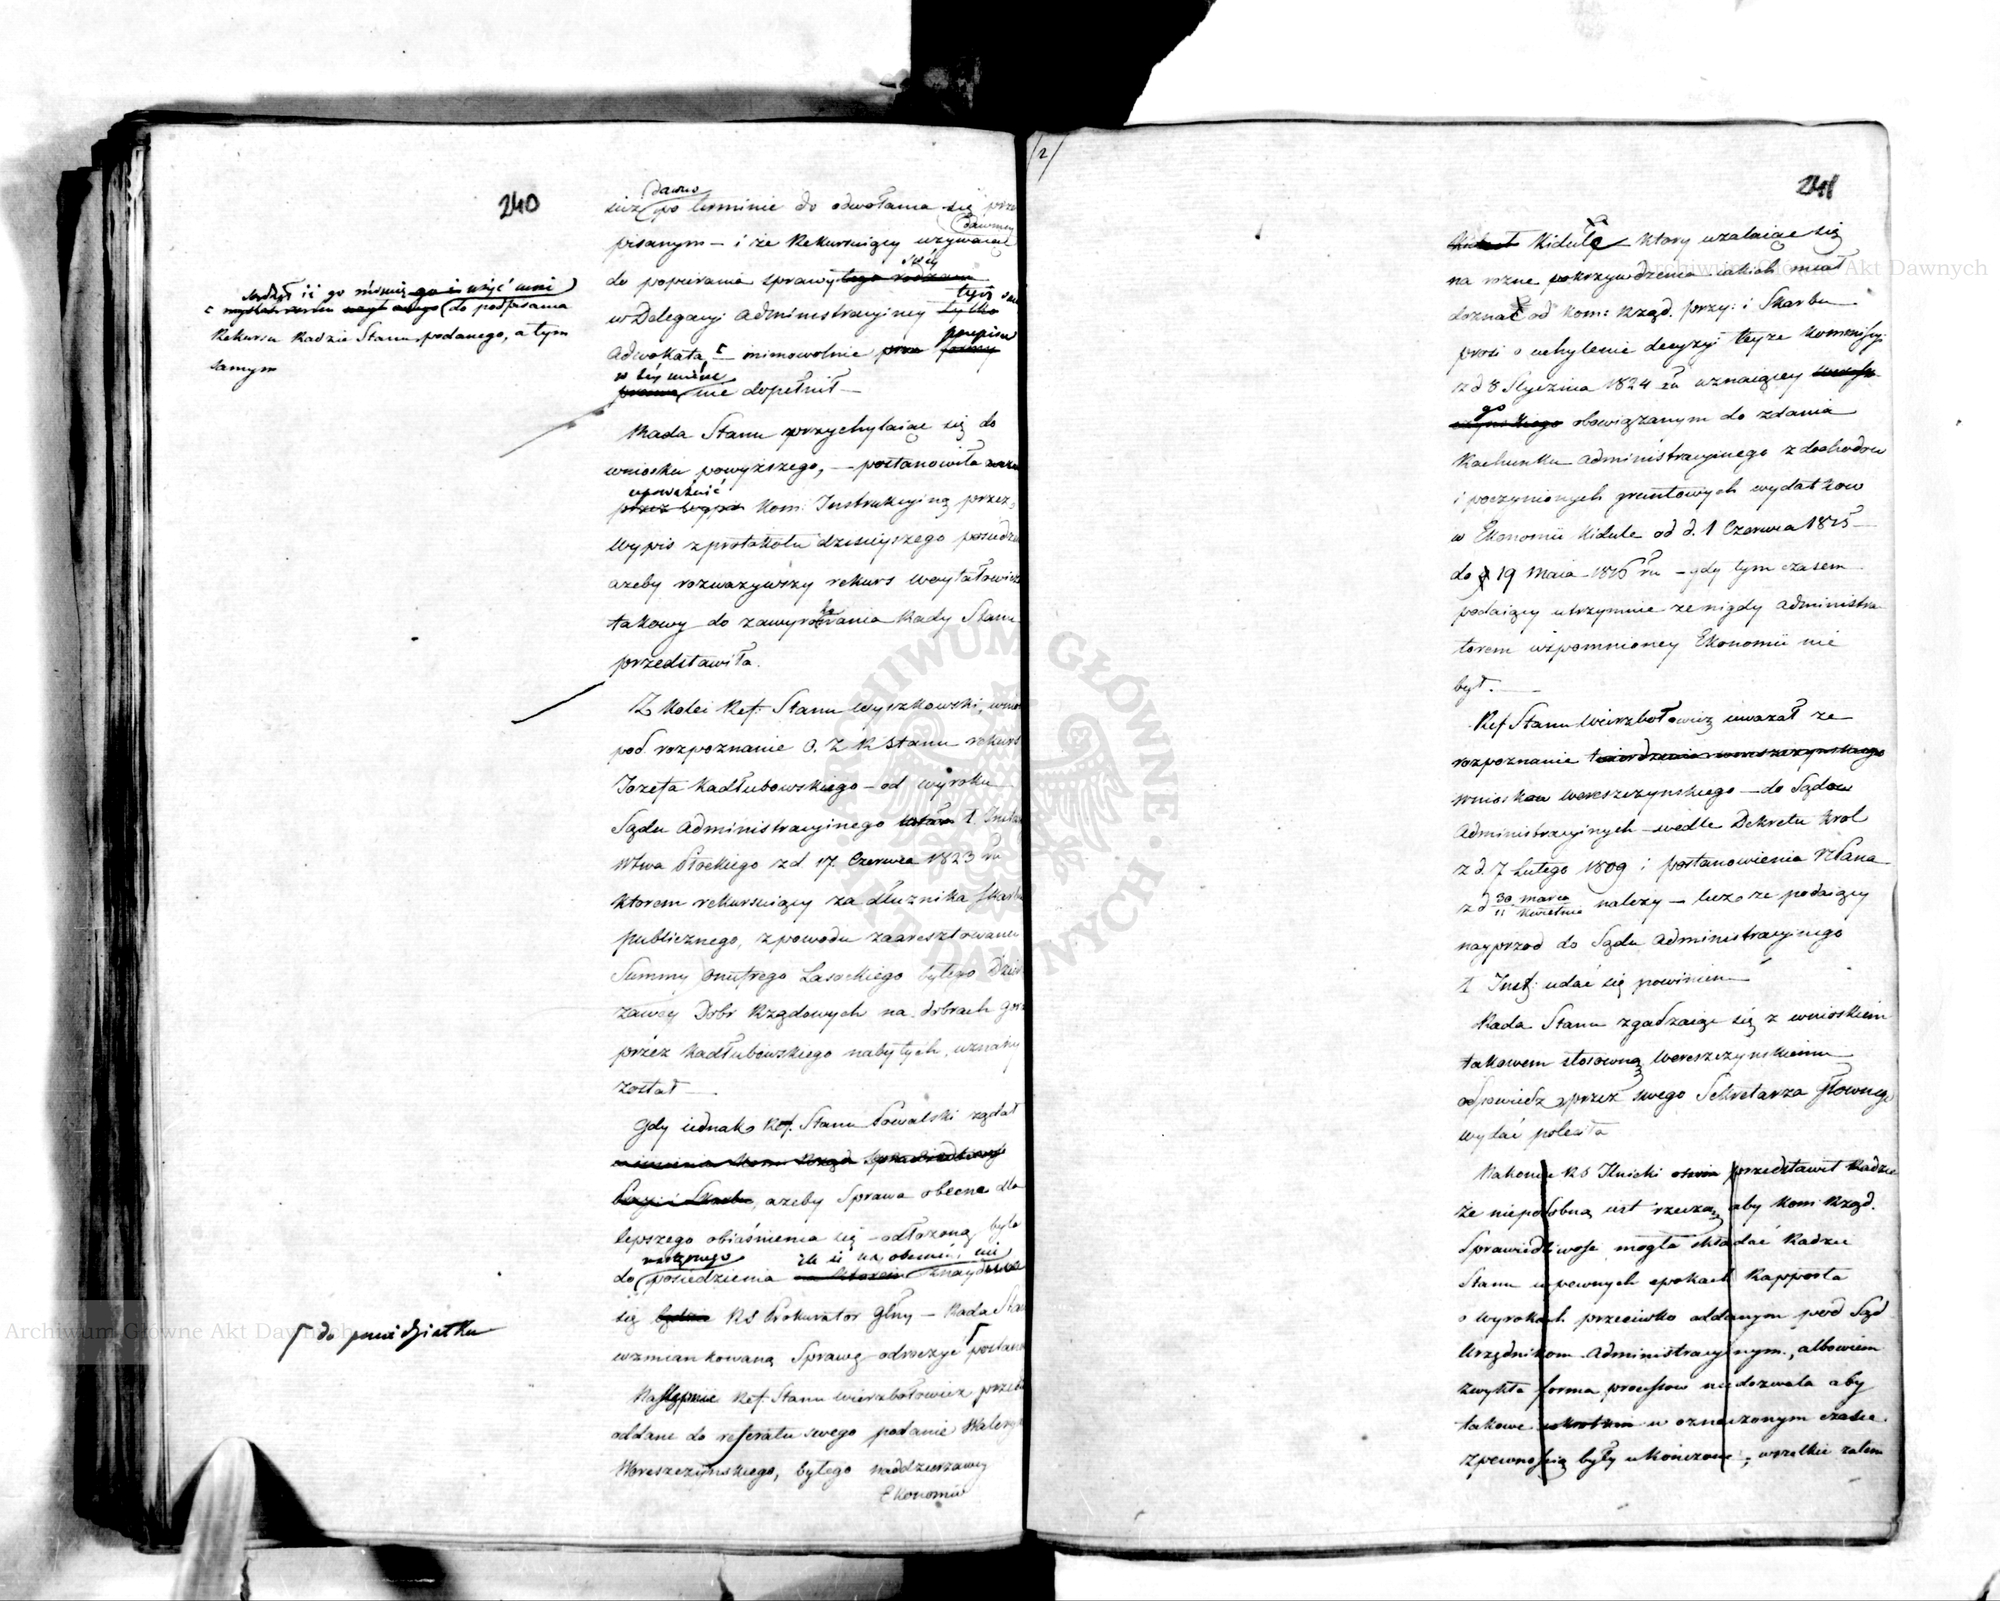 240
dawno
iuż po terminie do odwołania się prze
pisanym — i że Rekursuiący używaiąc
dawney
do popierania sprawy tego rodzaiu
swéy
w Delegacyi Administracyiney tylko
teyże
Adwokata mimowolnie przepisu
prawa nie dopełnił —
do podpisania
Rekursu Radzie Stanu podanego, a tym
samym
Rada Stanu przychylaiąc się do
wniosku powyższego, — postanowiła
upoważnić
Kom: Instrukcyiną przez
Wypis z protokołu dzisieyszego posiedze
ażeby rozważywszy rekurs Weryłatowicza
takowy do zawyrokowania Rady Stanu
przedstawiła.
Z kolei Ref: Stanu Wyszkowski, wniósł
pod rozpoznanie O. Z. R Stanu rekurs
Jozefa Kadłubowskiego — od wyroku
Sądu Administracyinego 1. Insta
Wtwa Płockiego z d 17. Czerwca 1823 ru
ktorem rekursuiący za dłużnika Skarbu
publicznego, z powodu zaaresztowania
Summy Onufrego Lasockiego byłego Dzier
żawcy Dobr Rządowych na dobrach Gora
przez Kadłubowskiego nabytych, uznany
został —
Gdy iednak Ref. Stanu Kowalski żądał
ażeby Sprawa obecna dla
lepszego obiaśnienia się — odłożoną była
następnego
do posiedzenia
ile iż na obecnéi nie
znayduie
się RS Prokurator Głny — Rada Sta
wzmiankowaną Sprawę odroczyć postano
⌈ do poniedziałku
Następnie Ref: Stanu Wierzbołowicz przeło
oddane do referatu swego podanie Waleryan
Wereszczyńskiego, byłego naddzierżawcy
Ekonomii
2
241
Kidule ktory użalaiąc się
na rożne pokrzywdzenia iakich miał
doznać od Kom: Rząd. przy: i Skarbu
prosi o uchylenie decyzyi teyże Kommissyi
z d 8 Stycznia 1824 ru uznaiącey
go obowiązanym do zdania
Rachunku Administracyinego z dochodow
i poczynionych gruntowych wydatkow
w Ekonomii Kidule od d. 1 Czerwca 1815
do 19 Maia 1816 ru — gdy tym czasem
podaiący utrzymuie że nigdy Administra
torem wspomnioney Ekonomii nie
był. —
Ref Stanu Wierzbołowicz uważał że
rozpoznanie twierdzenia wereszczynskiego
wnioskow Wereszczynskiego — do Sądow
Administracyinych — wedle Dekretu Krol
z d. 7 Lutego 1809 i postanowienia XNana
z d 30 marca
11 Kwietnia należy — luzo że podaiący
nayprzod do Sądu Administracyinego
1 Inst: udać się powinien
Rada Stanu zgadzaiąc się z wnioskiem
takowem stosowną Wereszczynskiemu
odpowiedz przez swego Sekretarza Głownego
wydać poleciła
Nakoniec RS Ilnicki przedstawił Radzie
że niepodobną iest rzeczą, aby Kom: Rząd.
Sprawiedliwosci mogła składać Radzie
Stanu w pewnych epokach Rapporta
o wyrokach przeciwko oddanym pod Sąd
Urzędnikom Administracyinym, albowiem
zwykła forma processow niedozwala aby
takowe w oznaczonym czasie
z pewnością były ukończone, wszelkie zatem